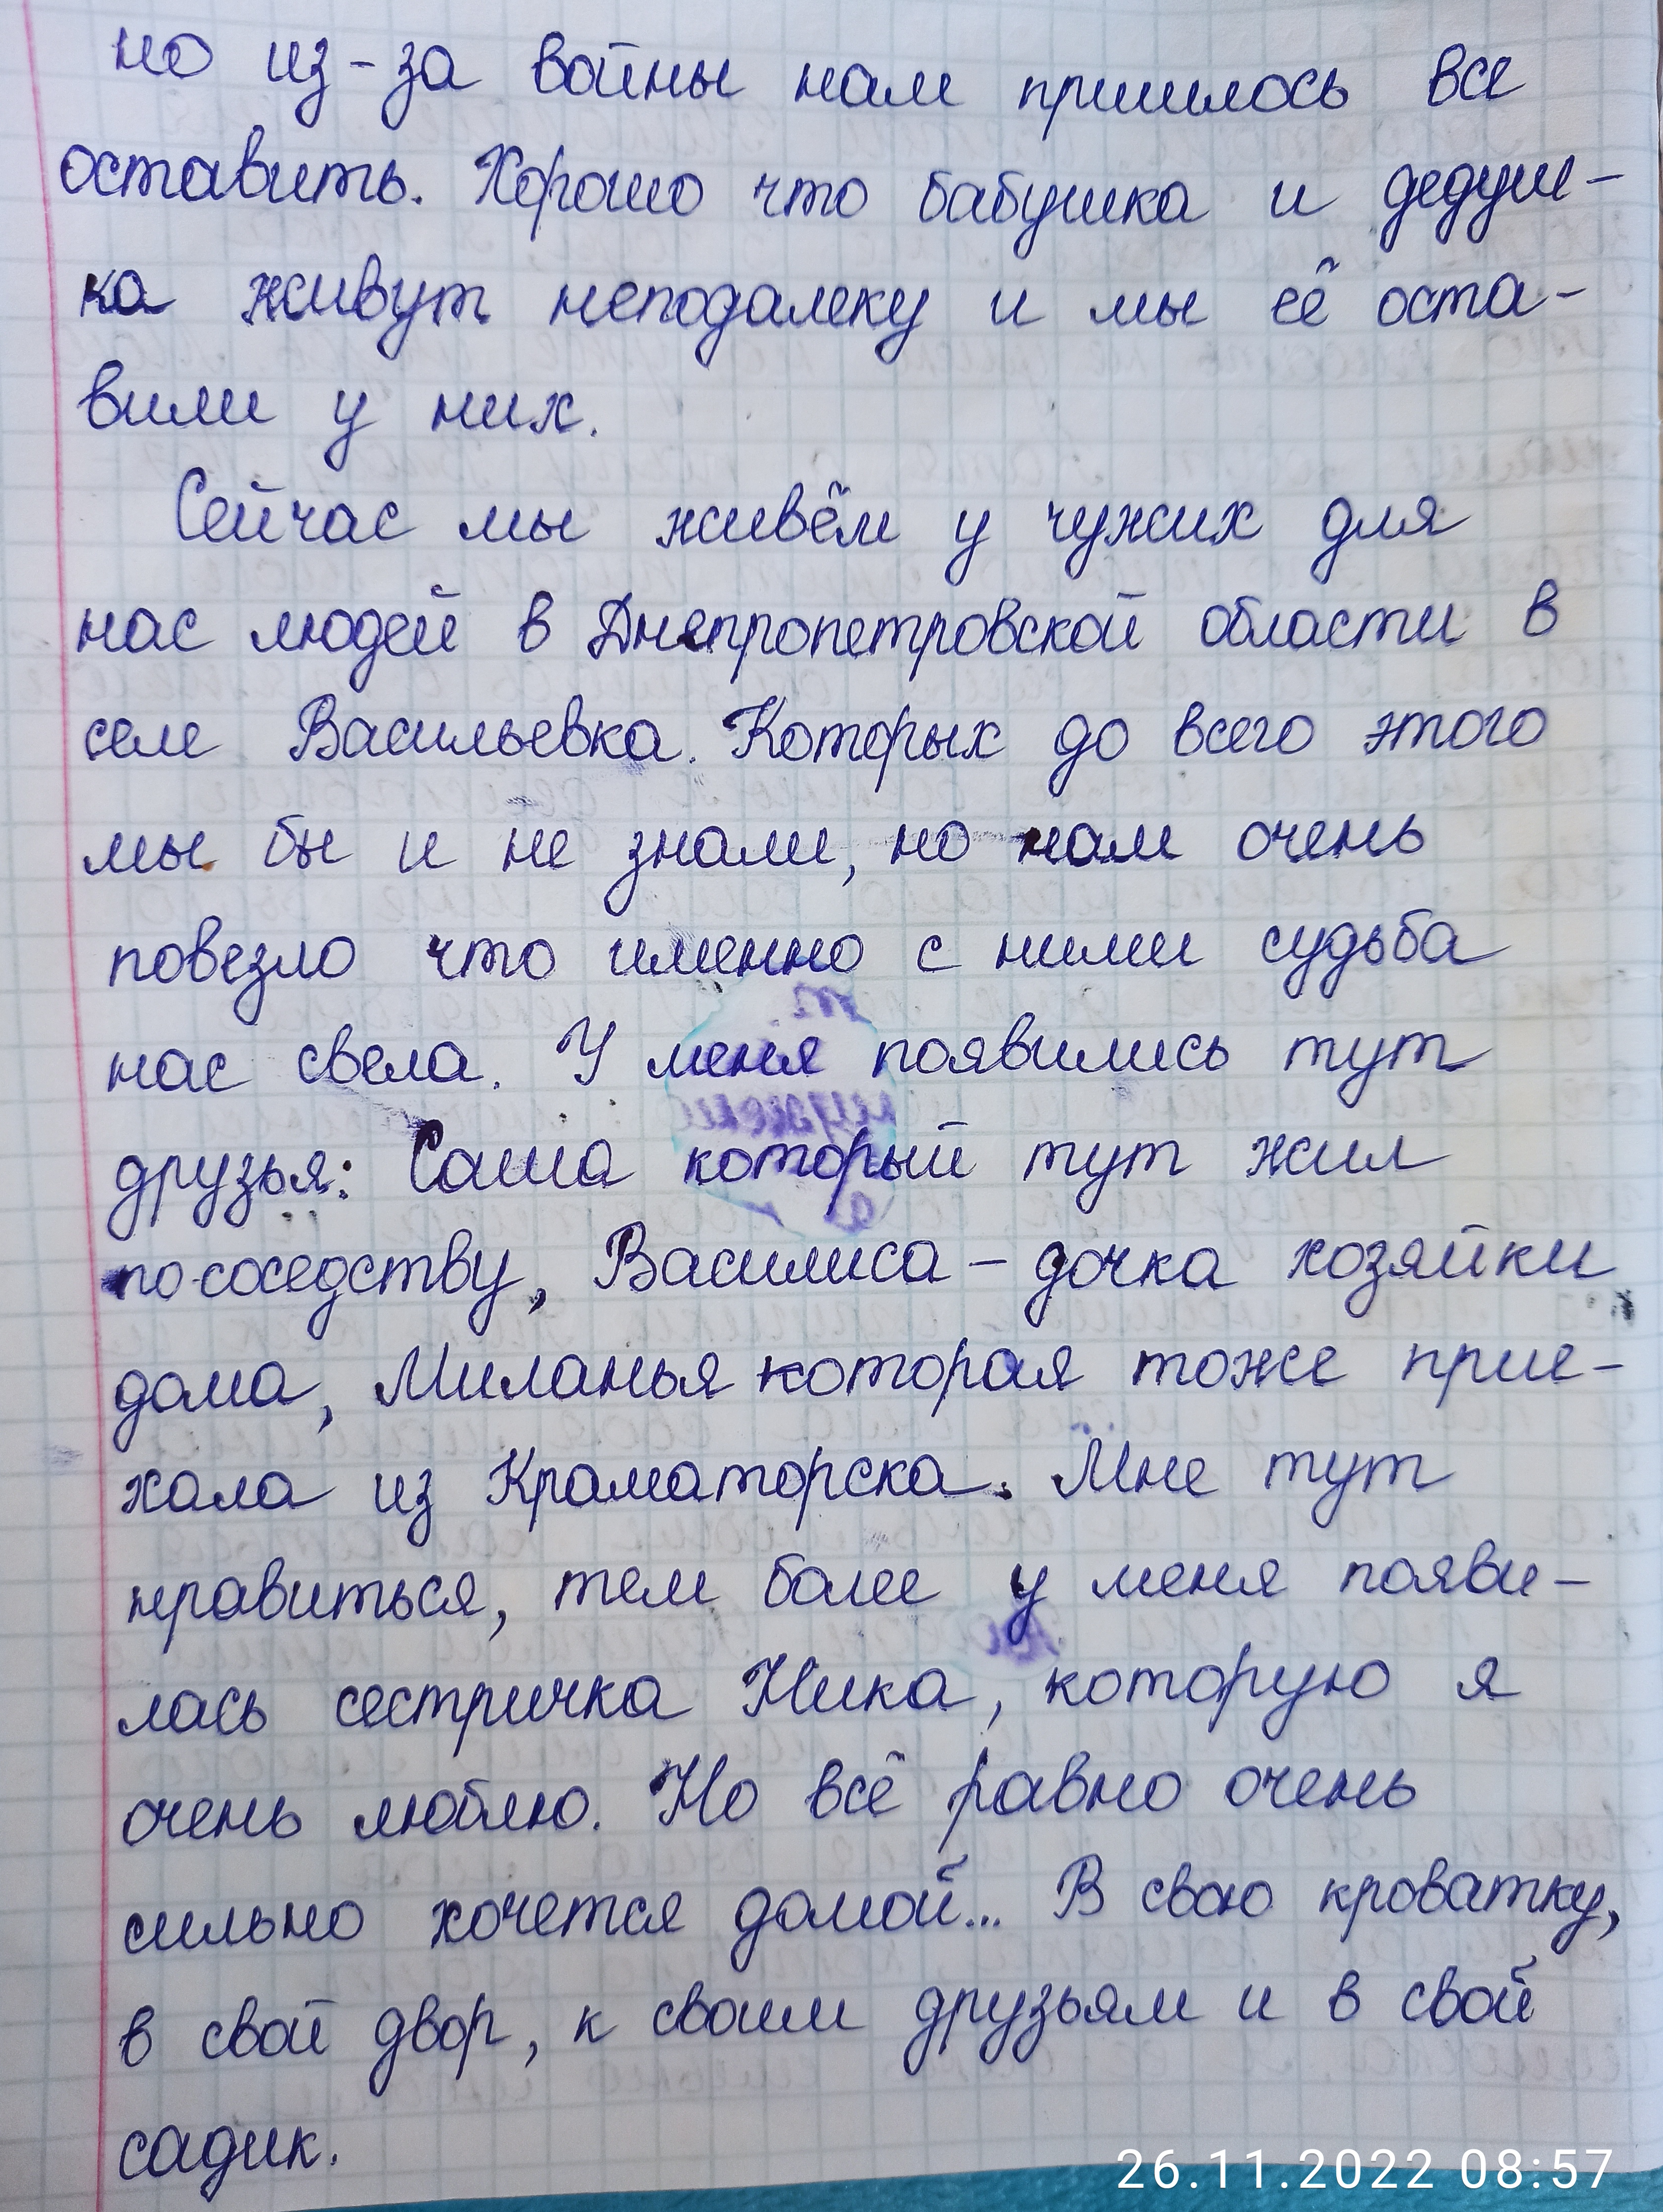 но из-за войны нам пришлось все
оставить. Хорошо что бабушка и дедуш-
ка живут неподалеку и мы её оста-
вили у них.
Сейчас мы живём у чужих для
нас людей в Днепропетровской области в
селе Васильевка. Которых до всего этого
мы бы и не знали, но нам очень
повезло что именно с ними судьба
нас свела. У меня появились тут
друзья: Саша который тут жил
по-соседству, Василиса - дочка хозяйки
дома, Миланья которая тоже прие-
хала из Краматорска. Мне тут
нравиться, тем более у меня появи-
лась сестричка Ника, которую я
очень люблю. Но всё равно очень
сильно хочется домой... В свою кроватку,
в свой двор, к своим друзьям и в свой
садик.
26.11.2022 08:57